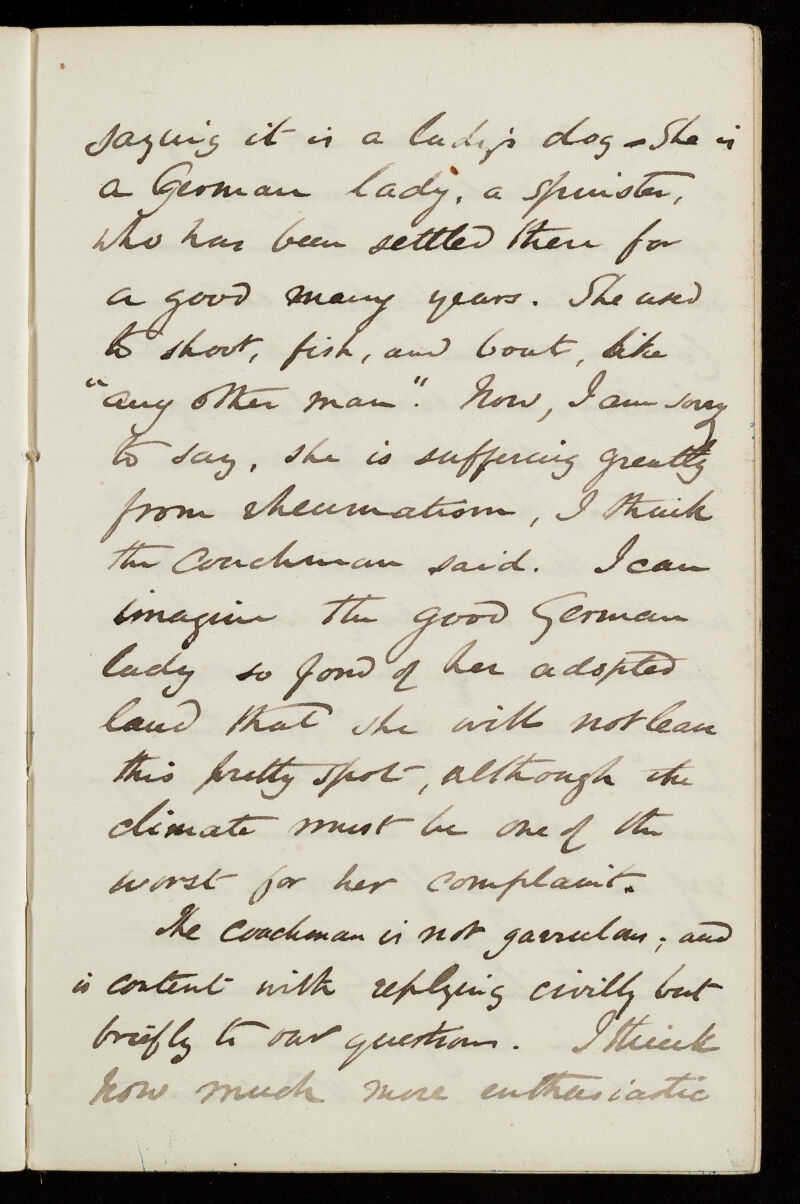 saying it is a lady's dog – She is
a German lady, a spinster,
who has been settled there for
a good many years. She used
to shoot, fish, and boat, like
"any other man". Now, I am sorry
to say, she is suffering greatly
from rheumatism, I think
the coachman said. I can
imagine the good German
lady so fond of her adopted
land that she will not leave
this pretty spot, although the
climate must be one of the
worst for her complaint.
The coachman is not garrulous; and
is content with replying civilly but
briefly to our questions. I think
how much more enthusiastic